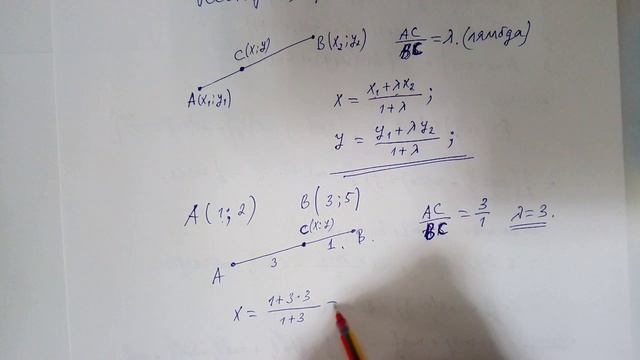 B(x₂;y₂)
C(x;y)
A(x₁;y₁)
AC/BC = λ. (лямбда)
x = (x₁+λx₂)/(1+λ) ;
y = (y₁+λy₂)/(1+λ) ;
A(1;2) B(3;5)
C(x;y)
A 3 1. B.
AC/BC = 3/1 λ=3.
x = (1+3·3)/(1+3) =